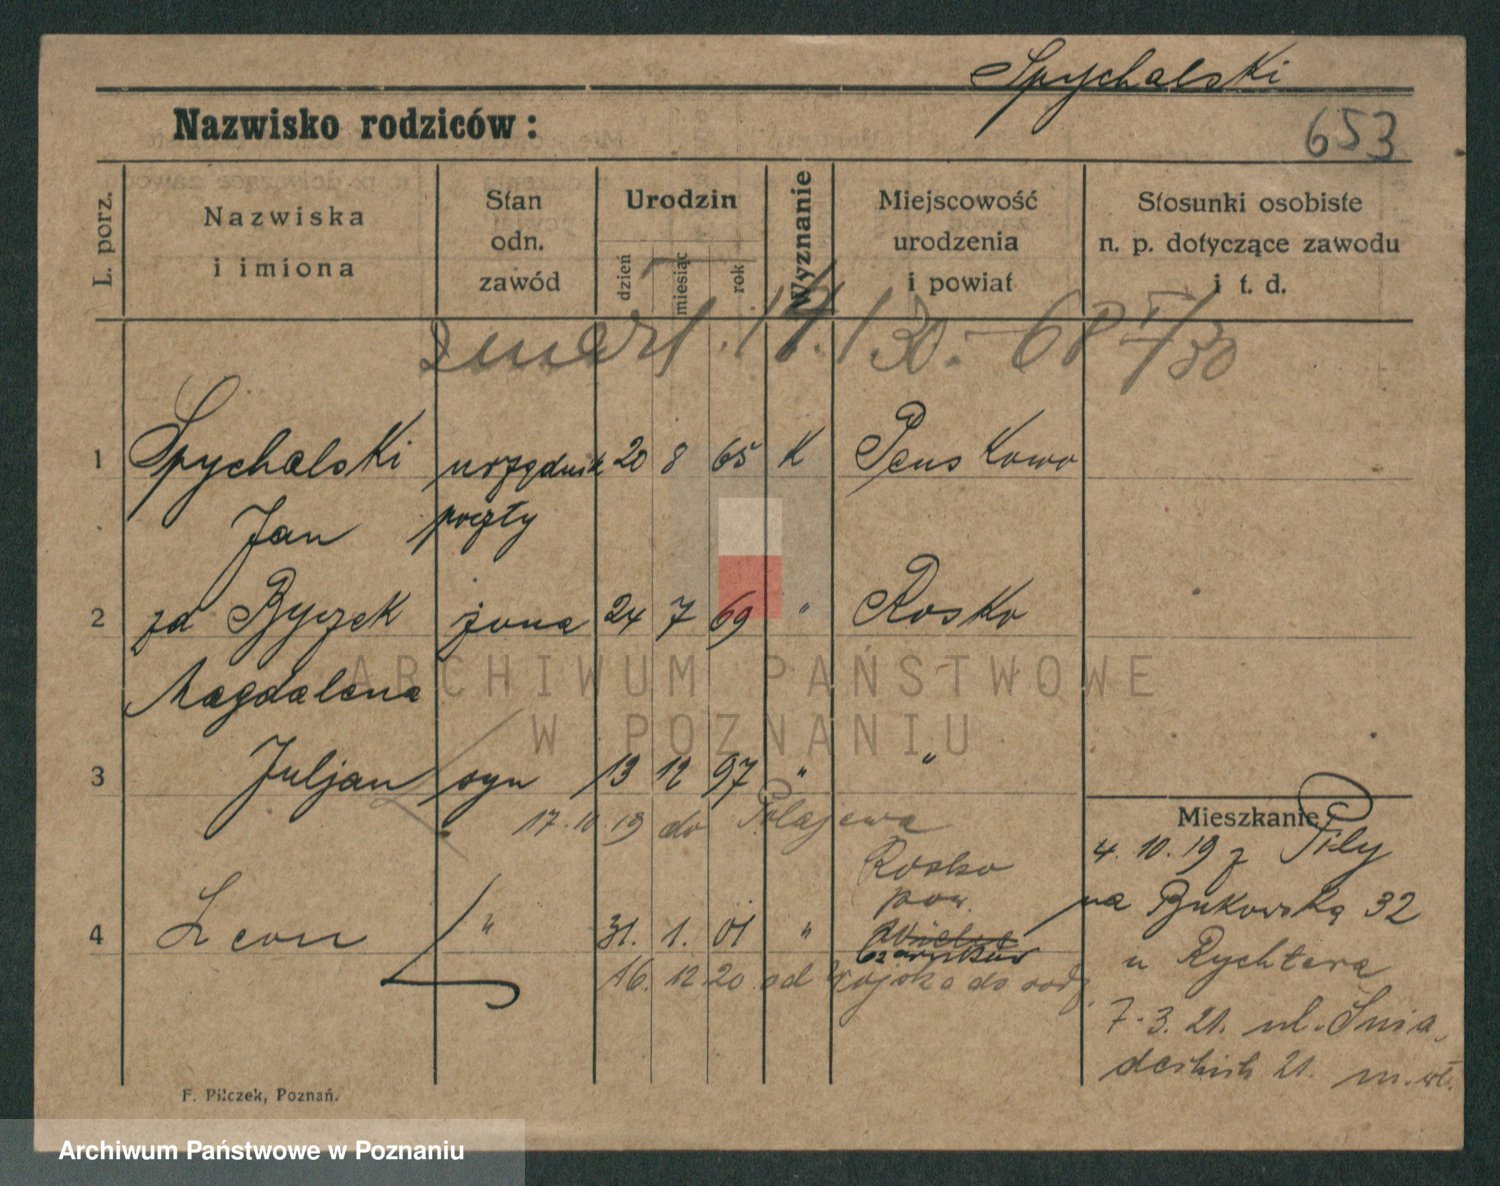 Spychalski
653
Nazwisko rodziców:
L. porz.
Nazwiska
i imiona
Stan
odn.
zawód
Urodzin
dzień
miesiąc
rok
Wyznanie
Miejscowość
urodzenia
i powiat
Stosunki osobiste
n. p. dotyczące zawodu
i t. d.
zmarł. 17.1.30. — 68 I/30
1 Spychalski urzędnik 20 8 65 K Penskowo
Jan poczty
2 zd Byczek żona 24 7 69 " Rosko
Magdalena
3 Juljan syn 13 12 97 " "
17.10.19 do Polajewa
Rosko
pow.
4 Leon " 31. 1. 01 " Wieleń
Czarnków
16. 12 20 od wojska do rodz.
Mieszkanie:
4.10.19 z Piły
na Bukowską 32
u Rychtera
7.3.21. ul. Śnia
deckich 21. m. wł.
F. Pilczek, Poznań.
ARCHIWUM PAŃSTWOWE
W POZNANIU
Archiwum Państwowe w Poznaniu